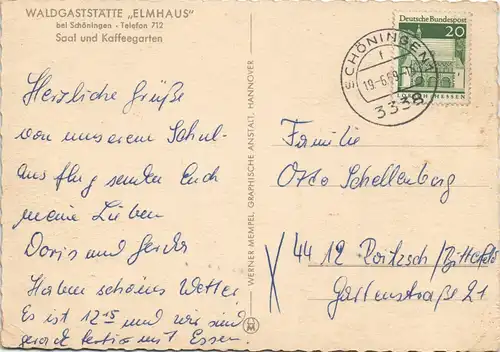 WALDGASTSTÄTTE „ELMHAUS"
bei Schöningen - Telefon 712
Saal und Kaffeegarten
Herzliche Grüße
von unserem Schul-
ausflug senden Euch
meine Lieben
Doris und Gerda
Haben schönes Wetter.
Es ist 12 15 und wir sind
gerade fertig mit Essen.
WERNER MEMPEL, GRAPHISCHE ANSTALT, HANNOVER
Deutsche Bundespost
20
LORSCH/HESSEN
SCHÖNINGEN
19.-6.69
3338
Familie
Otto Schellenberg
4412 Roitzsch/Bitterfeld
Gartenstraße 21